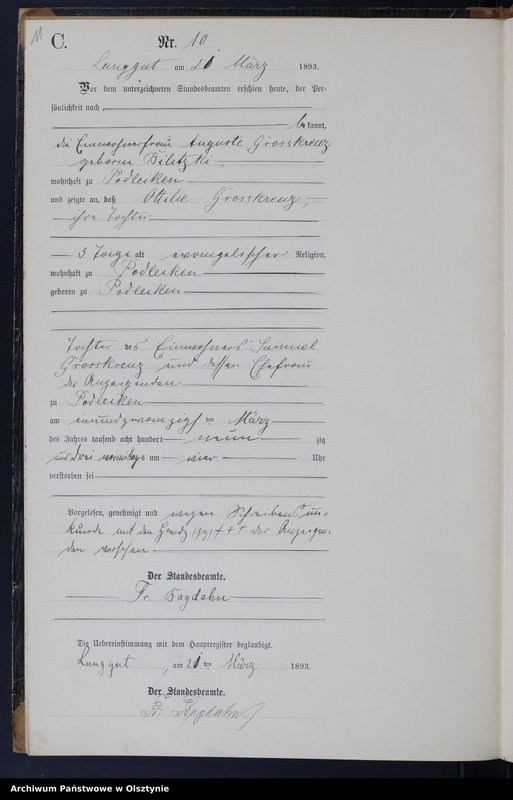 11
C.
Nr. 10
Langgut am 21 März 1893.
Vor dem unterzeichneten Standesbeamten erschien heute, der Per-
sönlichkeit nach
bekannt,
die Einwohnerfrau Auguste Grosskreuz
geborene Bilitzki,
wohnhaft zu Podleiken
und zeigte an, daß Ottilie Grosskreuz,
ihre Tochter
3 Tage alt evangelischer Religion,
wohnhaft zu Podleiken
geboren zu Podleiken
Tochter des Einwohners Samuel
Grosskreuz und dessen Ehefrau
der Anzeigenden
zu Podleiken
am einundzwanzigsten März
des Jahres tausend acht hundert neun zig
und drei vormittags um vier Uhr
verstorben sei
Vorgelesen, genehmigt und wegen Schreibensun-
kunde mit den Handz +++ der Anzeigen-
den versehen.
Der Standesbeamte.
Fr. Bagdahn
Die Uebereinstimmung mit dem Hauptregister beglaubigt.
Langgut, am 21 ten März 1893.
Der Standesbeamte.
Fr. Bagdahn
Archiwum Państwowe w Olsztynie